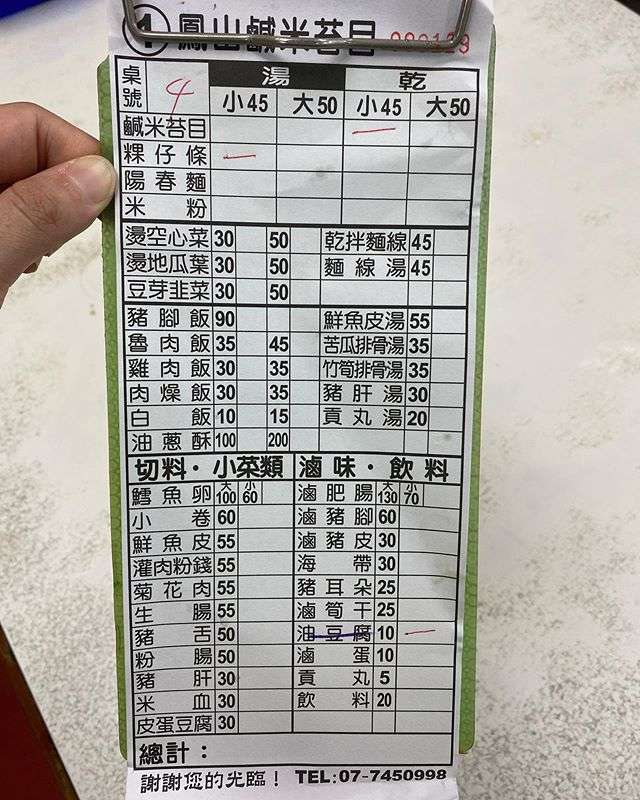 ① 鳳山鹹米苔目
桌號 4 湯 乾
小45 大50 小45 大50
鹹米苔目
粿仔條
陽春麵
米粉
燙空心菜 30 50 乾拌麵線 45
燙地瓜葉 30 50 麵線湯 45
豆芽韭菜 30 50
豬腳飯 90 鮮魚皮湯 55
魯肉飯 35 45 苦瓜排骨湯 35
雞肉飯 30 35 竹筍排骨湯 35
肉燥飯 30 35 豬肝湯 30
白飯 10 15 貢丸湯 20
油蔥酥 100 200
切料·小菜類 滷味·飲料
鱈魚卵 大100 小60 滷肥腸 大130 小70
小卷 60 滷豬腳 60
鮮魚皮 55 滷豬皮 30
灌肉粉錢 55 海帶 30
菊花肉 55 豬耳朵 25
生腸 55 滷筍干 25
豬舌 50 油豆腐 10
粉腸 50 滷蛋 10
豬肝 30 貢丸 5
米血 30 飲料 20
皮蛋豆腐 30
總計：
謝謝您的光臨！ TEL:07-7450998